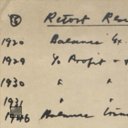 Retort Res
1930 Balance Ex.
1929 To Profit +
1930 " "
1931 "
1946 Balance